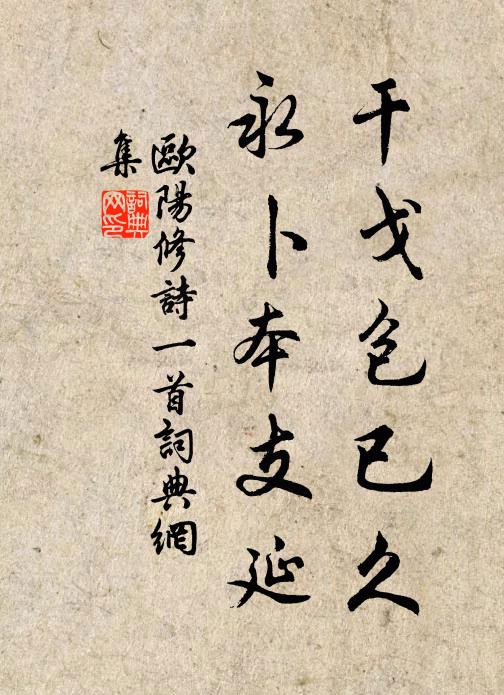 干戈包已久
永卜本支延
歐陽修詩一首詞典網
集
詞典
网印